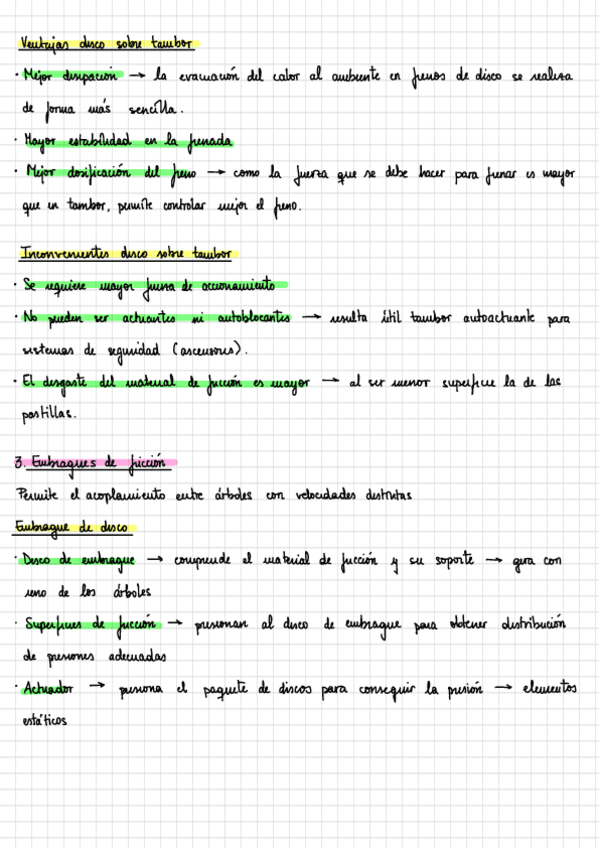 Ventajas disco sobre tambor
· Mejor disipación → la evacuación del calor al ambiente en frenos de disco se realiza
de forma más sencilla.
· Mayor estabilidad en la frenada
· Mejor dosificación del freno → como la fuerza que se debe hacer para frenar es mayor
que en tambor, permite controlar mejor el freno.
Inconvenientes disco sobre tambor
· Se requiere mayor fuerza de accionamiento
· No pueden ser actuantes ni autoblocantes → resulta útil tambor autoactuante para
sistemas de seguridad (ascensores).
· El desgaste del material de fricción es mayor → al ser menor superficie la de las
pastillas.
3. Embragues de fricción
Permite el acoplamiento entre árboles con velocidades distintas
Embrague de disco
· Disco de embrague → comprende el material de fricción y su soporte → gira con
uno de los árboles
· Superficies de fricción → presionan al disco de embrague para obtener distribución
de presiones adecuadas
· Actuador → presiona el paquete de discos para conseguir la presión → elementos
estáticos